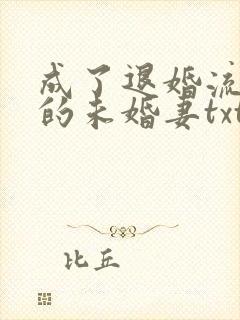 成了退婚流
的未婚妻txt
比丘